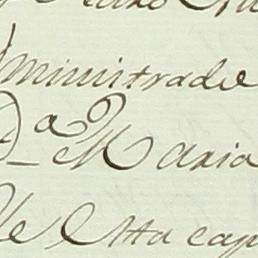 ministrade
D.ª Maria
de Esta cap